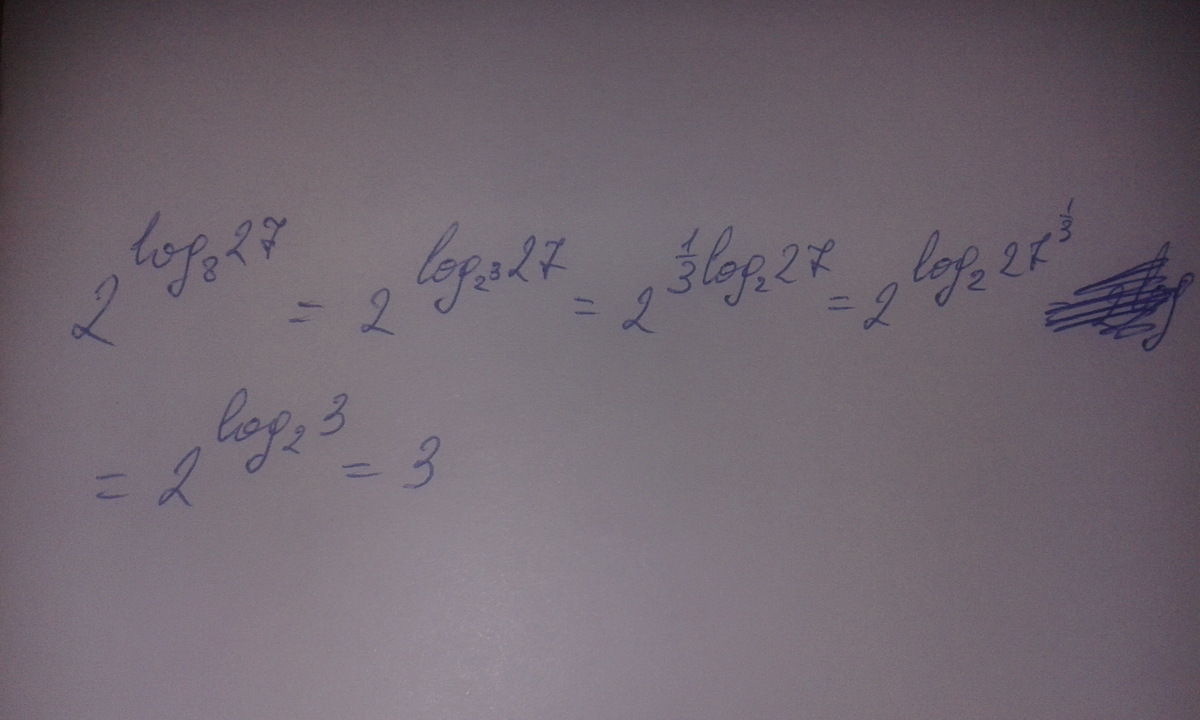 2^{log_8 27} = 2^{log_{2^3} 27} = 2^{\frac{1}{3} log_2 27} = 2^{log_2 27^{\frac{1}{3}}}
= 2^{log_2 3} = 3